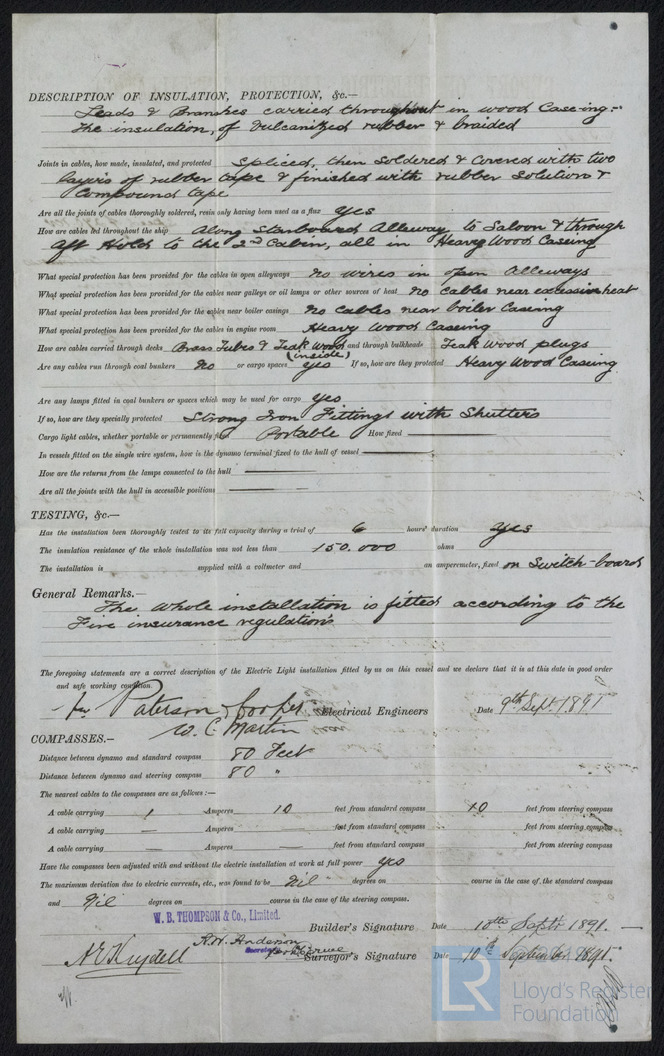 DESCRIPTION OF INSULATION, PROTECTION, &c.—
Leads & Branches carried throughout in wood Case-ing:-
The insulation, of Vulcanized rubber & braided
Joints in cables, how made, insulated, and protected Spliced, then Soldered & Covered with two
layers of rubber tape & finished with rubber Solution &
Compound tape
Are all the joints of cables thoroughly soldered, resin only having been used as a flux Yes
How are cables led throughout the ship Along Starboard Alleway to Saloon & through
aft Hold to the 2nd Cabin, all in Heavy Wood Caseing
What special protection has been provided for the cables in open alleyways No wires in open Alleways
What special protection has been provided for the cables near galleys or oil lamps or other sources of heat No cables near excessive heat
What special protection has been provided for the cables near boiler casings No cables near boiler Caseing
What special protection has been provided for the cables in engine room Heavy Wood Caseing
How are cables carried through decks Brass Tubes & Teak Wood (inside) and through bulkheads Teak Wood plugs
Are any cables run through coal bunkers No or cargo spaces yes If so, how are they protected Heavy Wood Caseing
Are any lamps fitted in coal bunkers or spaces which may be used for cargo yes
If so, how are they specially protected Strong Iron Fittings with Shutters
Cargo light cables, whether portable or permanently fixed Portable How fixed
In vessels fitted on the single wire system, how is the dynamo terminal fixed to the hull of vessel
How are the returns from the lamps connected to the hull
Are all the joints with the hull in accessible positions
TESTING, &c.—
Has the installation been thoroughly tested to its full capacity during a trial of 6 hours' duration yes
The insulation resistance of the whole installation was not less than 150.000 ohms
The installation is supplied with a voltmeter and an amperemeter, fixed on Switch-board
General Remarks.—
The whole installation is fitted according to the
Fire insurance regulations
The foregoing statements are a correct description of the Electric Light installation fitted by us on this vessel and we declare that it is at this date in good order
and safe working condition.
for Paterson & Cooper Electrical Engineers Date 9th Sept 1891
W. C. Martin
COMPASSES.—
Distance between dynamo and standard compass 80 Feet
Distance between dynamo and steering compass 80 "
The nearest cables to the compasses are as follows:—
A cable carrying 1 Amperes 10 feet from standard compass 10 feet from steering compass
A cable carrying — Amperes — feet from standard compass feet from steering compass
A cable carrying — Amperes — feet from standard compass feet from steering compass
Have the compasses been adjusted with and without the electric installation at work at full power yes
The maximum deviation due to electric currents, etc., was found to be Nil degrees on course in the case of the standard compass
and Nil degrees on course in the case of the steering compass.
W. B. THOMPSON & Co., Limited.
Builder's Signature Date 10th Septr 1891.
A. W. Anderson
Secretary
Surveyor's Signature Date 10th September 1891.
LR
Lloyd's Register
Foundation